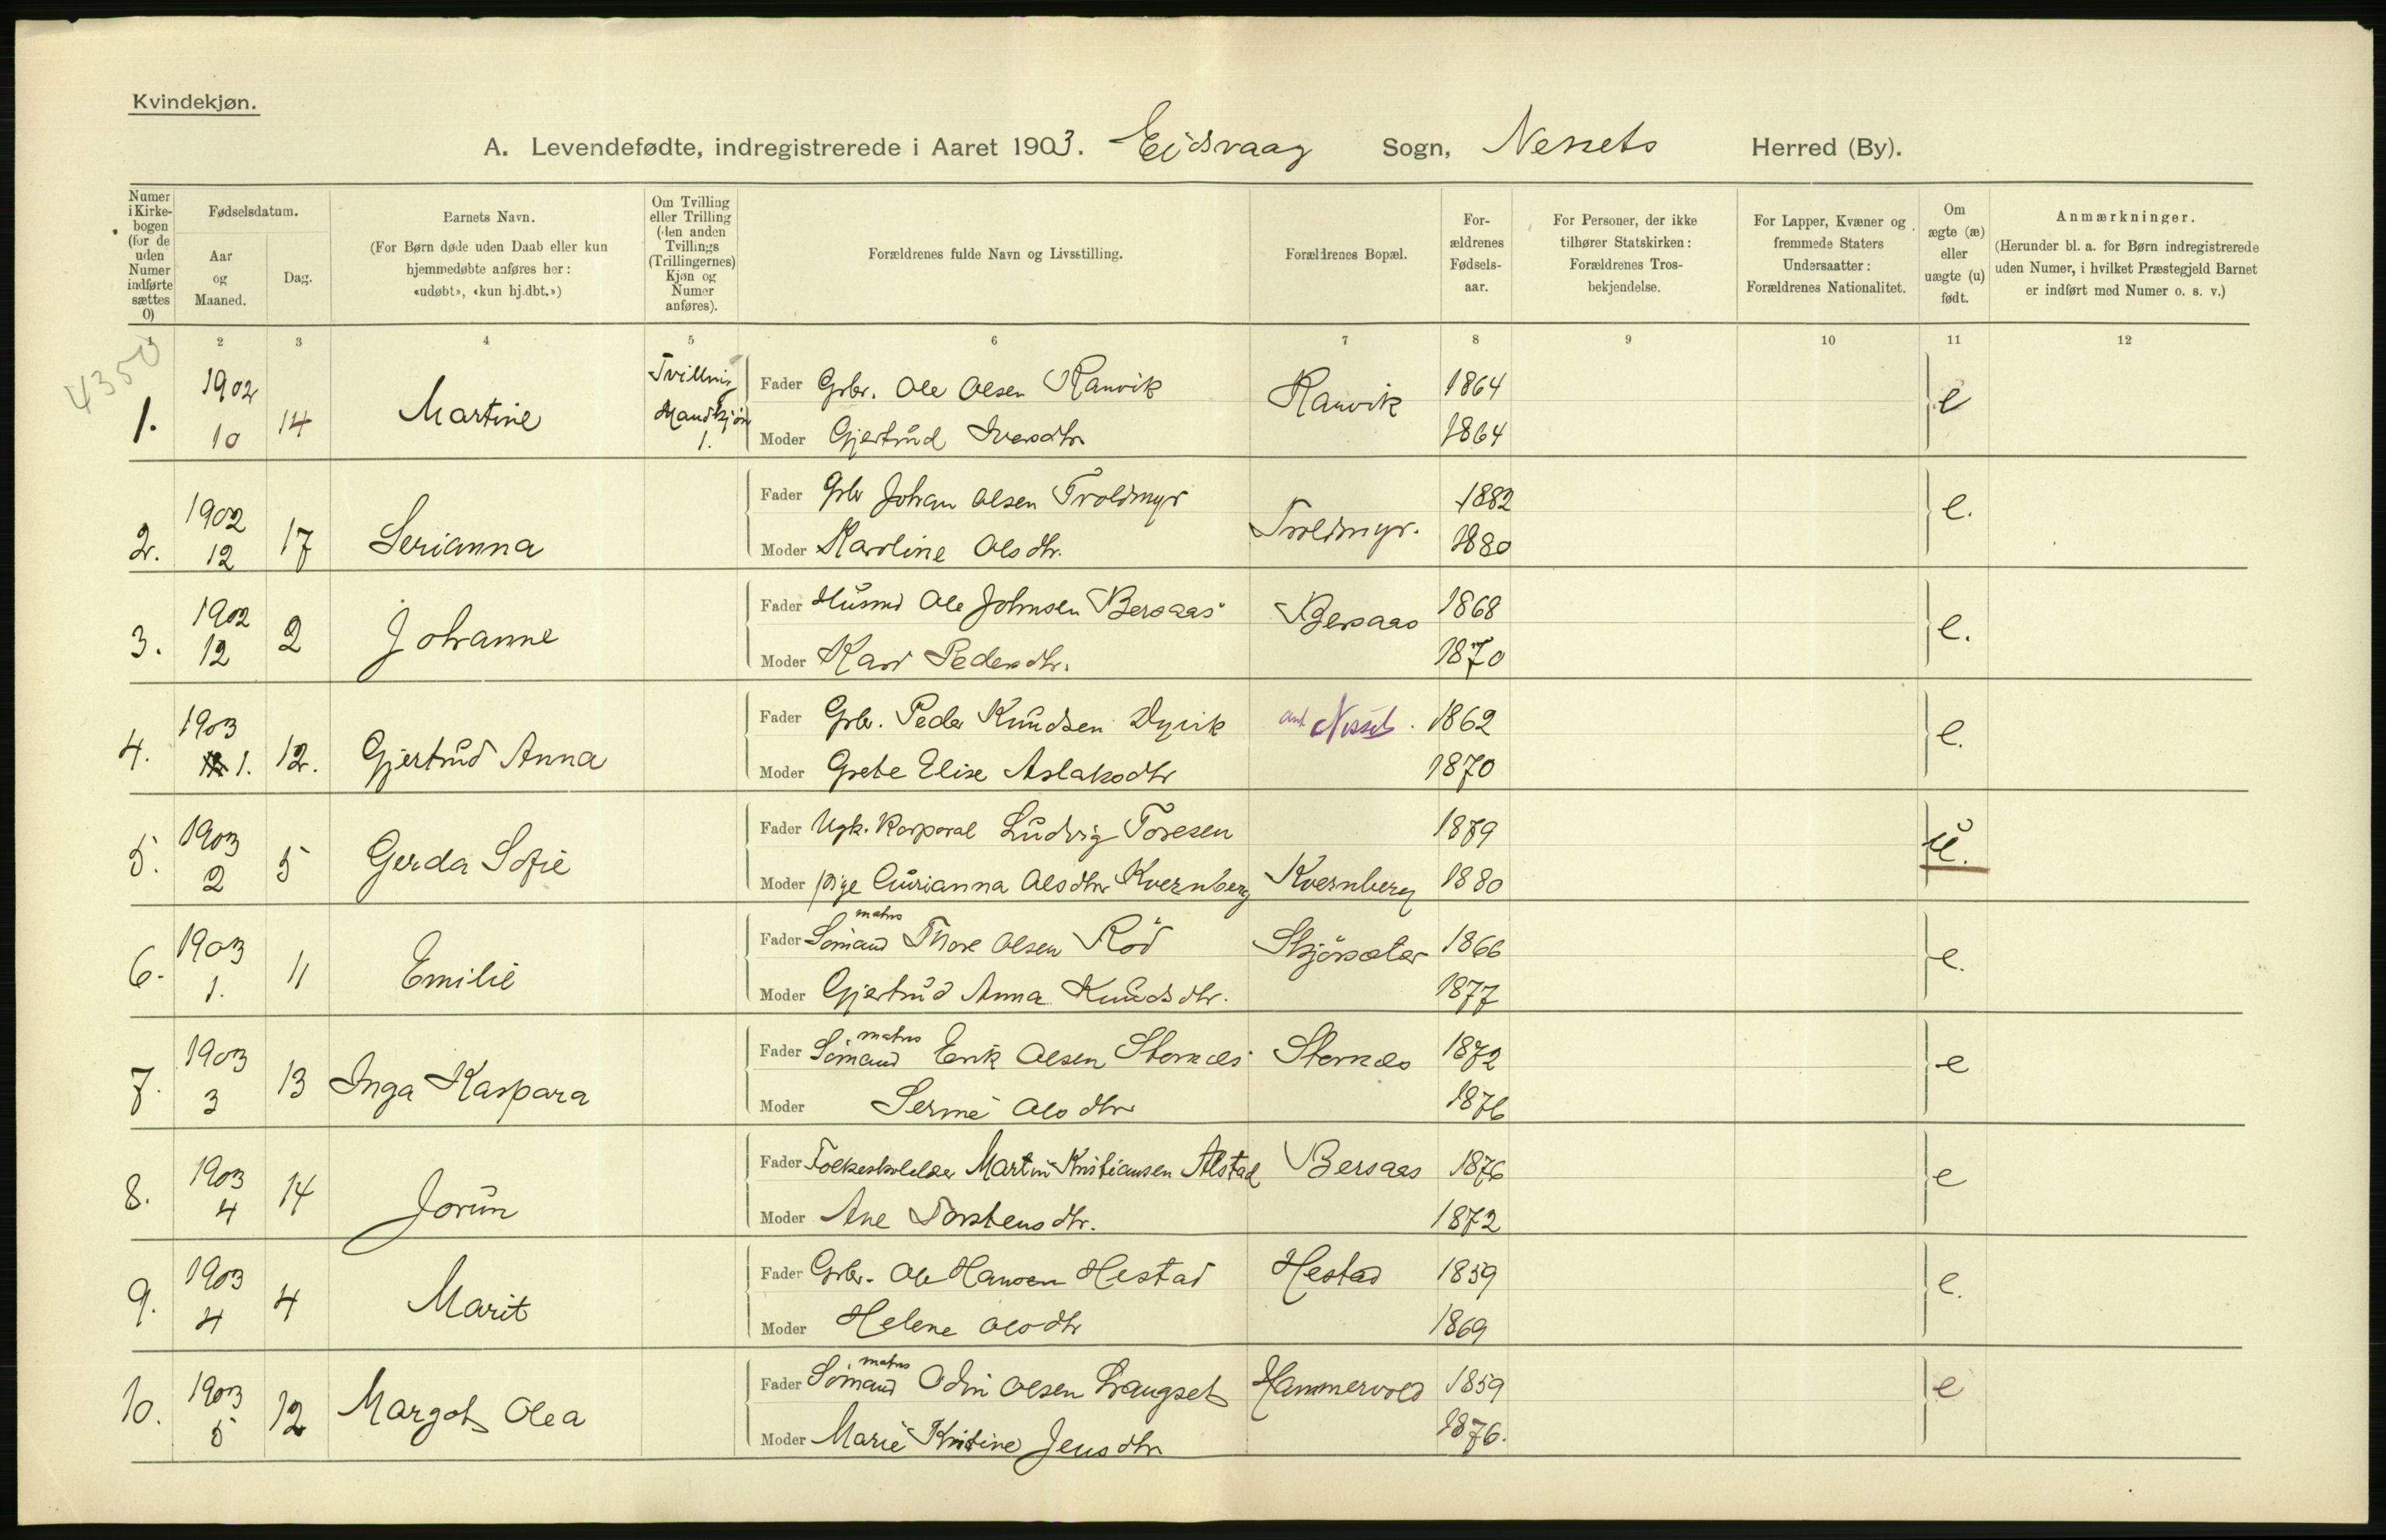 Kvindekjøn.
A. Levendefødte, indregistrerede i Aaret 1903. Eidsvaag Sogn, Nessets Herred (By).
Numer i Kirke-bogen (for de uden Numer indførte sættes 0)
Fødselsdatum.
Aar og Maaned.
Dag.
Barnets Navn.
(For Børn døde uden Daab eller kun hjemmedøbte anføres her: «udøbt», «kun hj.dbt.»)
Om Tvilling eller Trilling (den anden Tvillings (Trillingernes) Kjøn og Numer anføres).
Forældrenes fulde Navn og Livsstilling.
Forældrenes Bopæl.
For-ældrenes Fødsels-aar.
For Personer, der ikke tilhører Statskirken: Forældrenes Tros-bekjendelse.
For Lapper, Kvæner og fremmede Staters Undersaatter: Forældrenes Nationalitet.
Om ægte (æ) eller uægte (u) født.
Anmærkninger.
(Herunder bl. a. for Børn indregistrerede uden Numer, i hvilket Præstegjeld Barnet er indført med Numer o. s. v.)
1 2 3 4 5 6 7 8 9 10 11 12
4350
1. 1902 10 14 Martine Tvilling Mandkjøn 1.
Fader Gbr. Ole Olsen Ranvik Ranvik 1864 e
Moder Gjertrud Iversdtr 1864
2. 1902 12 17 Serianna
Fader Gbr Johan Olsen Troldmyr Troldmyr. 1882 e.
Moder Karoline Olsdtr. 1880
3. 1902 12 2 Johanne
Fader Husmd Ole Johnsen Bersaas Bersaas 1868 e.
Moder Kari Pedersdtr. 1870
4. 1903 1. 12. Gjertrud Anna
Fader Gbr. Peder Knudsen Dyvik Nesset. 1862 e.
Moder Grete Elise Aslaksdtr 1870
5. 1903 2 5 Gerda Sofie
Fader Ugk. Korporal Ludvig Toresen 1879 u.
Moder pige Gurianna Olsdtr Kvernberg Kvernberg 1880
6. 1903 1. 11 Emilie
Fader Sømand matros Thore Olsen Rød Skjørsæter 1866 e.
Moder Gjertrud Anna Knudsdtr. 1877
7. 1903 3 13 Inga Kaspara
Fader Sømand matros Erik Olsen Stornæs Stornæs 1872 e
Moder Serine Olsdtr 1876
8. 1903 4 14 Jorun
Fader Folkeskolelærer Martin Kristiansen Alstad Bersaas 1876 e
Moder Ane Torstensdtr. 1872
9. 1903 4 4 Marit
Fader Gbr. Ole Hansen Hestad Hestad 1859 e.
Moder Helene Olsdtr 1869
10. 1903 5 12 Margot Olea
Fader Sømand matros Odin Olsen Langset Hammervold 1859 e
Moder Marie Kristine Jensdtr 1876.